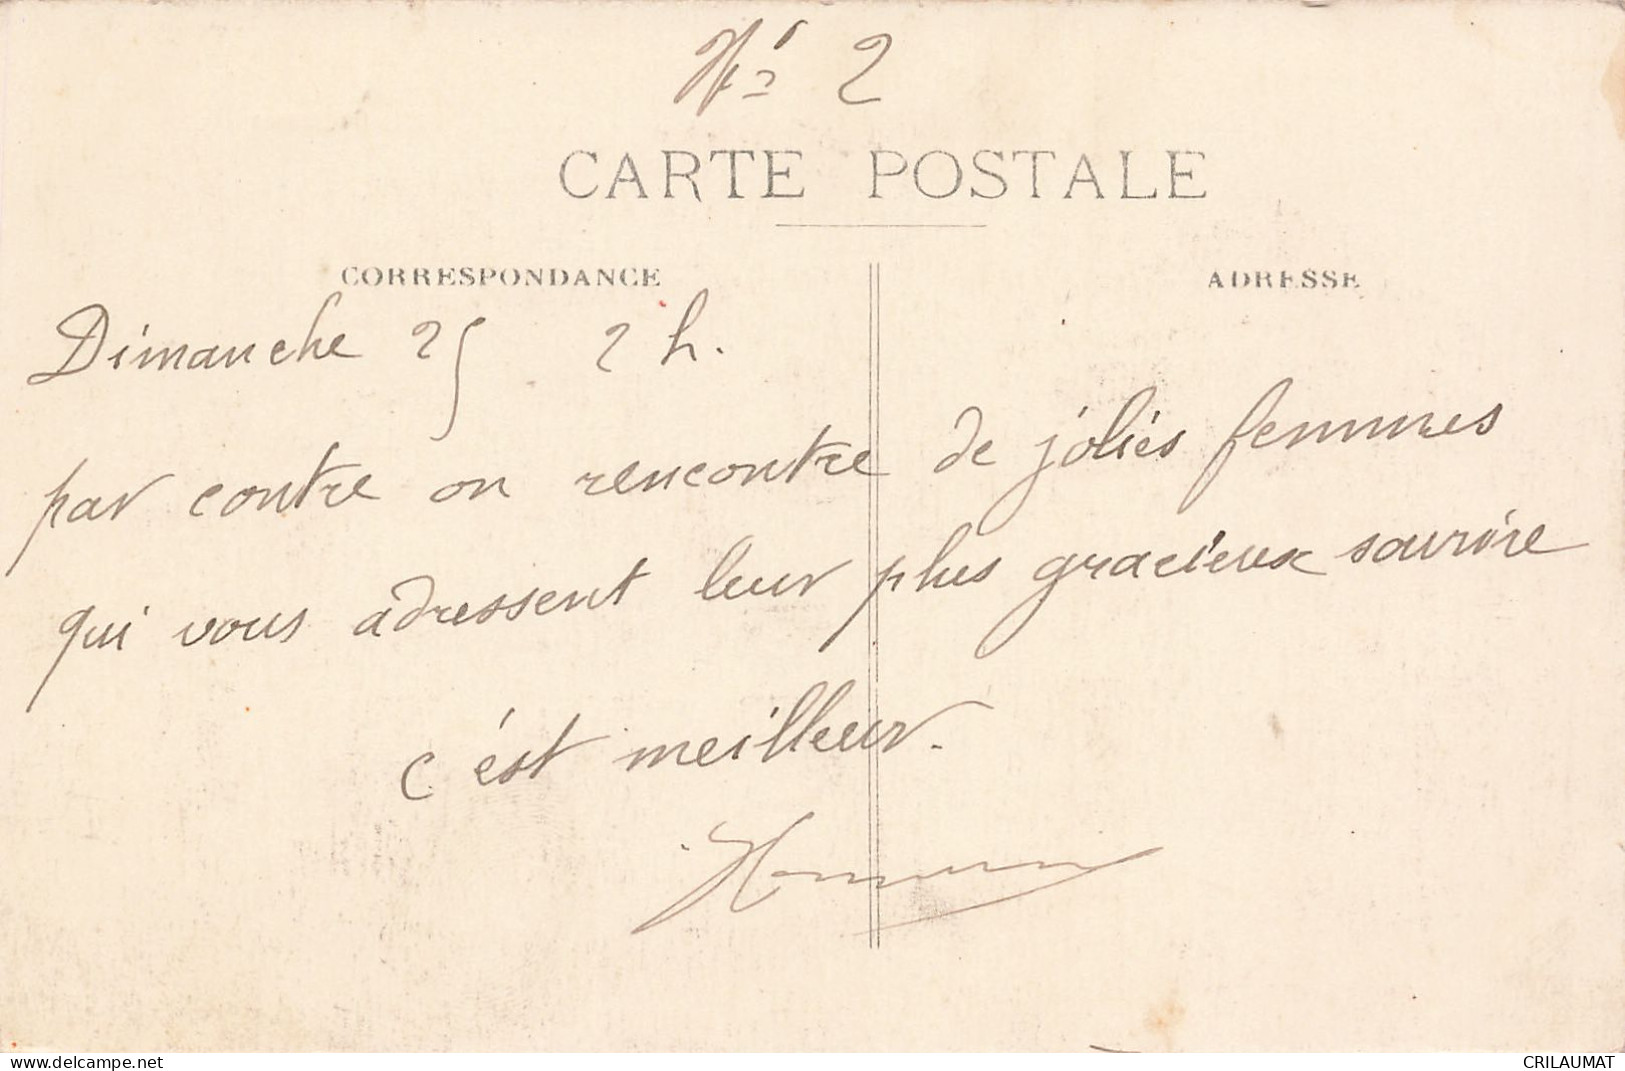 No 2
CARTE POSTALE
CORRESPONDANCE
ADRESSE
Dimanche 25 2 h.
par contre on rencontre de jolies femmes
qui vous adressent leur plus gracieux sourire
c'est meilleur.
delcampe.net
CRILAUMAT